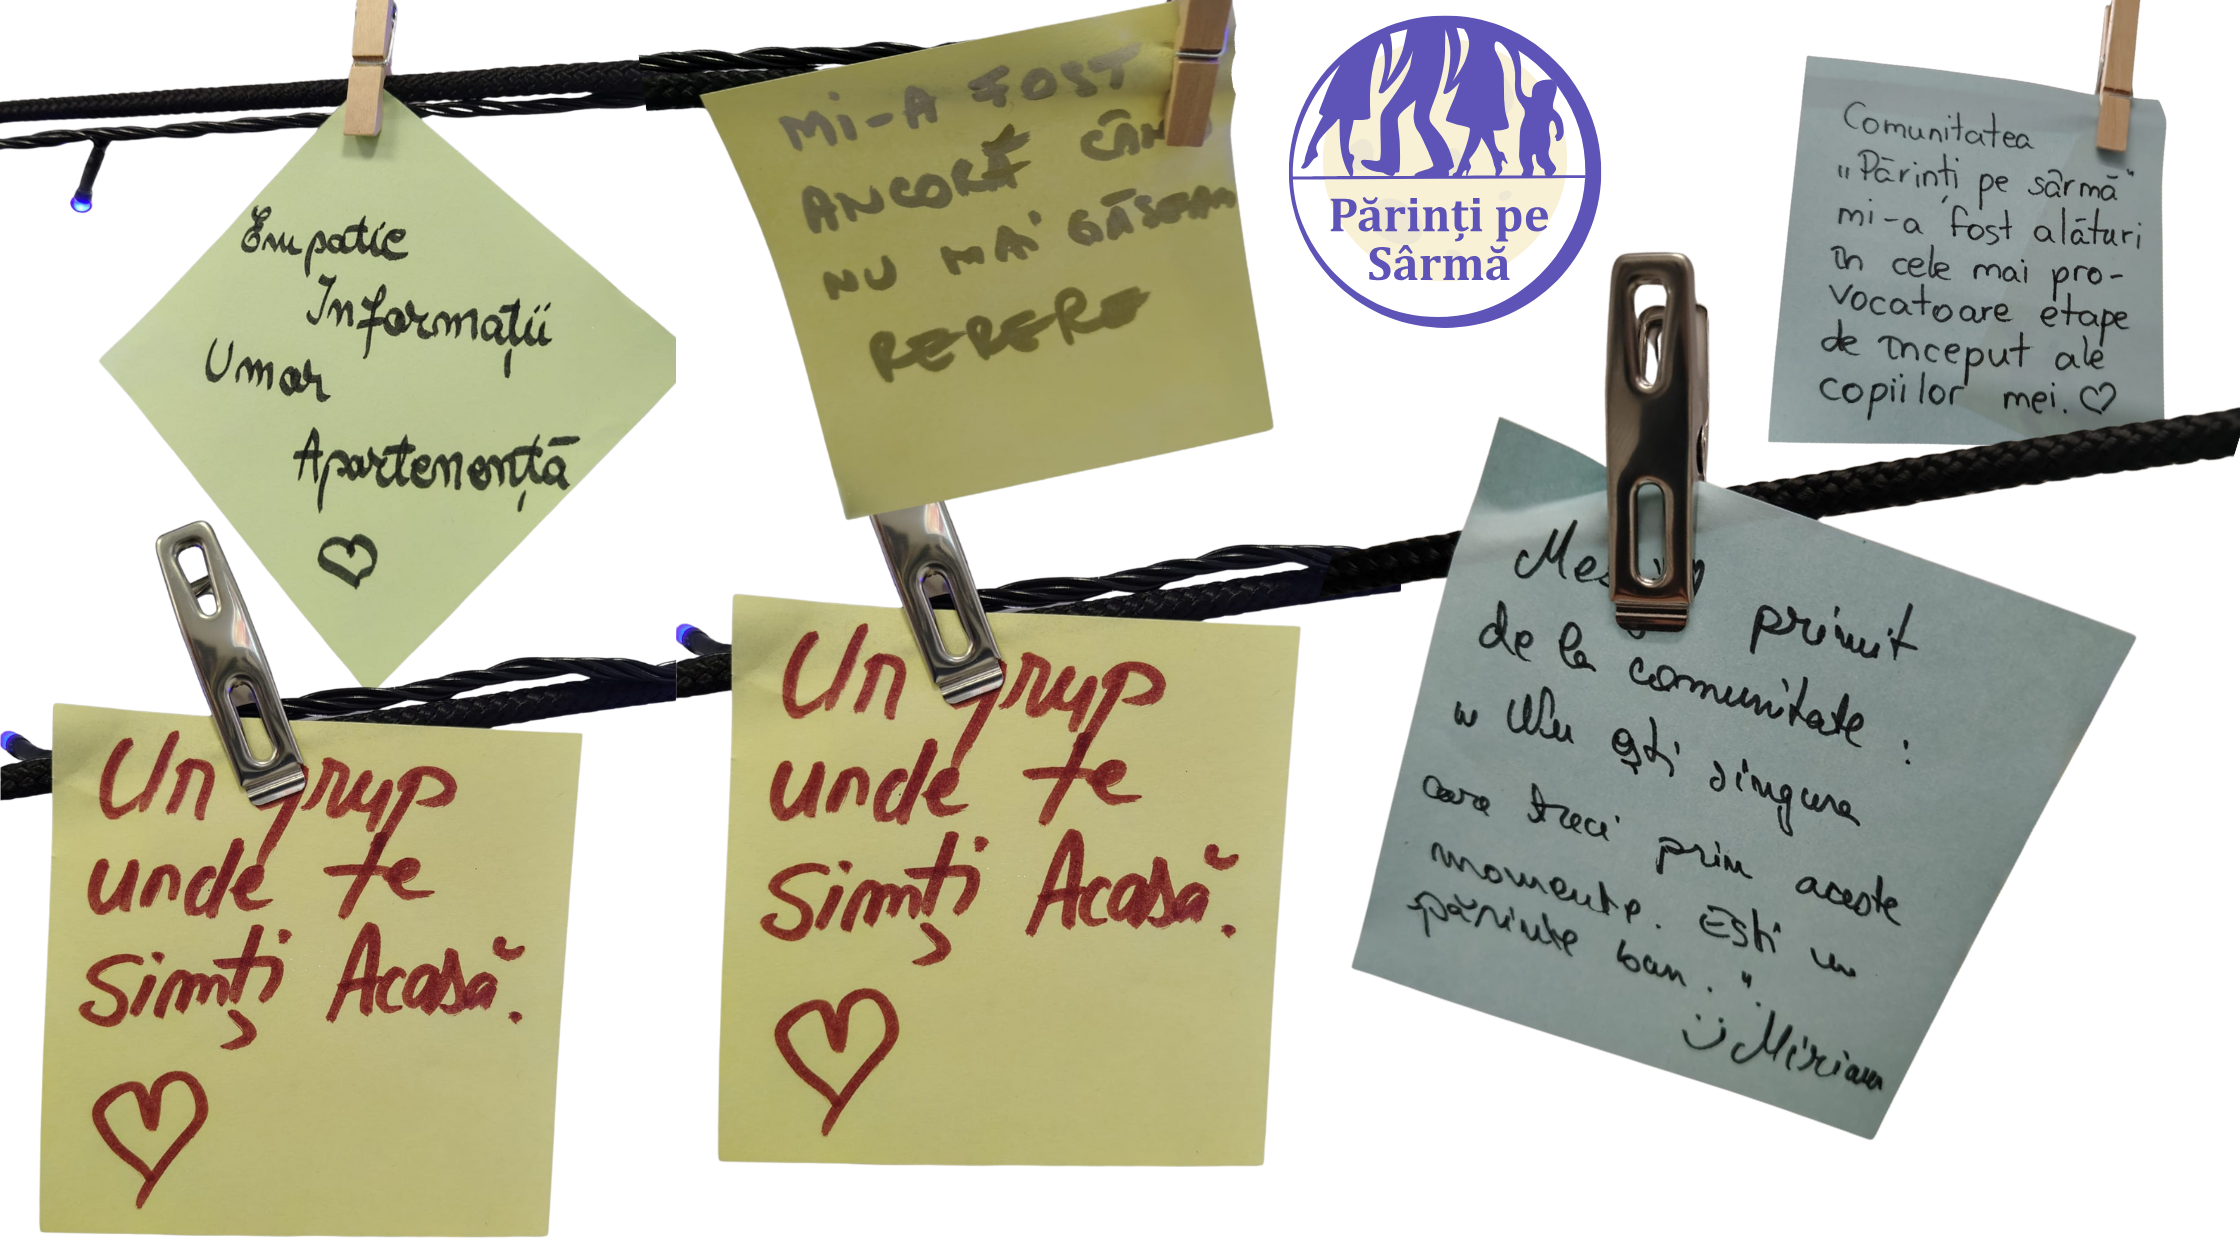 Empatie
Informații
Umor
Apartenență
MI-A FOST
ANCORĂ CÂND
NU MAI GĂSEAM
REPERE
Părinți pe
Sârmă
Comunitatea
"Părinti pe sârmă"
mi-a fost alături
în cele mai pro-
vocatoare etape
de început ale
copiilor mei.
Un grup
unde te
simți Acasă.
Un grup
unde te
simți Acasă.
primit
de la comunitate:
"Nu ești singura
care treci prin aceste
momente. Ești un
părinte bun."
Miriam